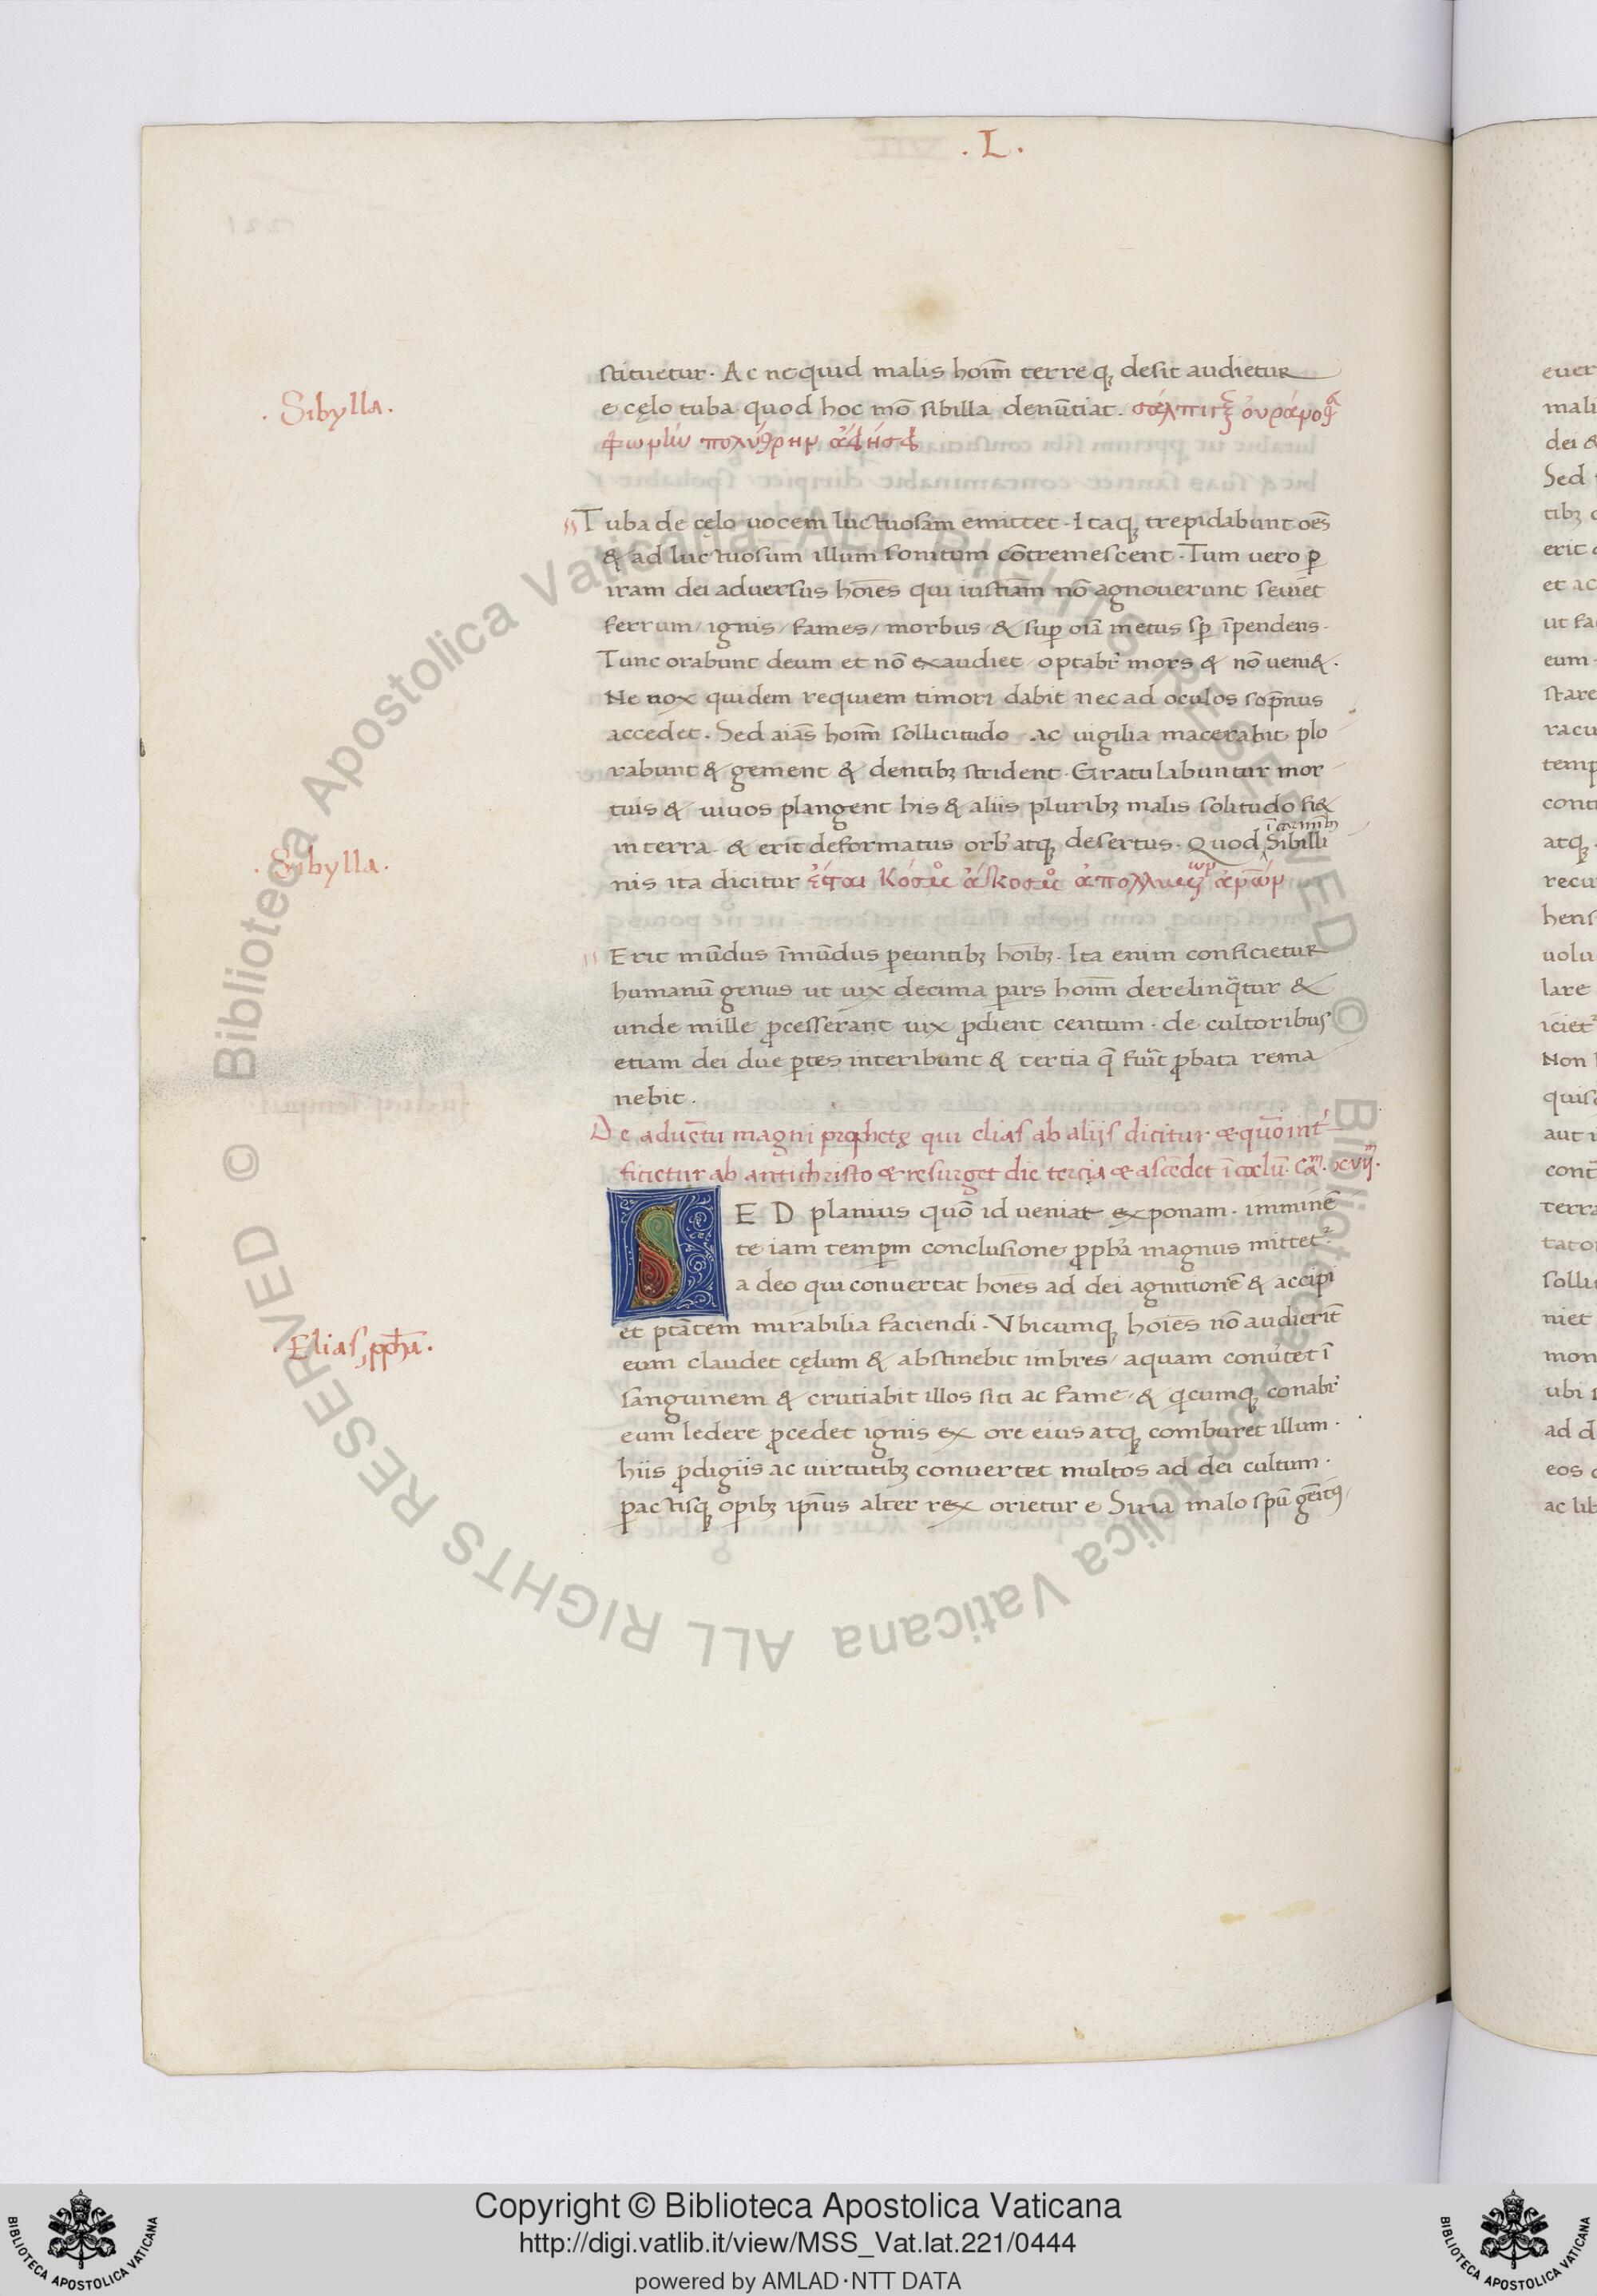 . L .
stituetur . Ac nequid malis hoīm terreq, desit audietur
. Sibylla .
e cęlo tuba quod hoc mō sibilla denūtiat . σάλπιγξ οὐράνοθ
φωνὴν πολύθρην ἀφήσει
Tuba de cęlo uocem luctuosam emittet . Itaq, trepidabunt oēs
& ad luctuosum illum sonitum cōtremescent . Tum vero ꝑ
iram dei adversus hoīes qui iustiam nō agnouerunt seuiet
ferrum / ignis / fames / morbus / & suꝑ oīa metus sꝑ īpendens .
Tunc orabunt deum et nō exaudiet / optabr̄ mors & nō veni& .
Ne nox quidem requiem timori dabit nec ad oculos sopnus
accedet . Sed aīas hoīm sollicitudo . ac uigilia macerabit plo
rabunt & gement & dentibꝫ strident . Gratulabuntur mor
tuis & uiuos plangent his & aliis pluribꝫ malis solitudo fi&
in terra & erit deformatus orb' atq, desertus . Quod ī carmīb Sibilli
. Sibylla .
nis ita dicitur ἔσται Κόσμος ἄκοσμος ἀπολλυμένων ἀνρῶν
Erit mūdus īmūdus ꝑeuntibꝫ hoībꝫ . Ita enim conficietur
humanū genus ut uix decima ꝑars hoīm derelinqtur &
unde mille ꝓcesserant uix ꝓdient centum . de cultoribus
etiam dei due ꝑtes interibunt & tertia q̄ fuīt ꝓbata rema
nebit .
De aduētu magni prophetę qui elias ab alijs dicitur & quō int'
ficietur ab antichristo & resurget die tercia & ascēdet ī cœlū . Cam . xvij .
SED planius quō id veniat exponam . imminē
te iam temꝑm conclusione ꝓpha magnus mittet
a deo qui convertat hoīes ad dei agnitionē & accipi
et ptātem mirabilia faciendi . Vbicumq, hoīes nō audierīt
. Elias, ppha .
eum claudet cęlum & abstinebit imbres / aquam conūtet ī
sanguinem & cruciabit illos siti ac fame / & qcumq, conabr̄
eum ledere ꝓcedet ignis ex ore eius atq, comburet illum .
hiis ꝓdigiis ac uirtutibꝫ convertet multos ad dei cultum .
ꝑactisq, oꝑibꝫ ipīus alter rex orietur e Siria malo spū gēitꝯ
Copyright © Biblioteca Apostolica Vaticana
http://digi.vatlib.it/view/MSS_Vat.lat.221/0444
powered by AMLAD·NTT DATA
BIBLIOTECA APOSTOLICA VATICANA
BIBLIOTECA APOSTOLICA VATICANA
© Biblioteca Apostolica Vaticana ALL RIGHTS RESERVED
© Biblioteca Apostolica Vaticana ALL RIGHTS RESERVED